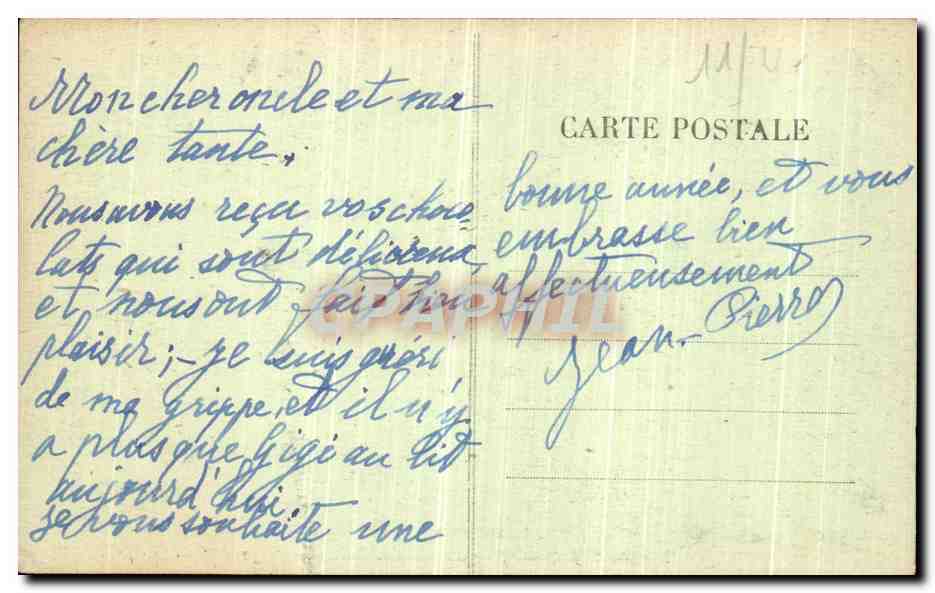 Mon cher oncle et ma
chère tante,
Nous avons reçu vos choco-
lats qui sont délicieux
et nous ont fait bien
plaisir; - je suis guéri
de ma grippe, et il n'y
a plus que Gigi au lit
aujourd'hui.
je vous souhaite une
11/
CARTE POSTALE
bonne année, et vous
embrasse bien
affectueusement
Jean-Pierre
CPAPHIL